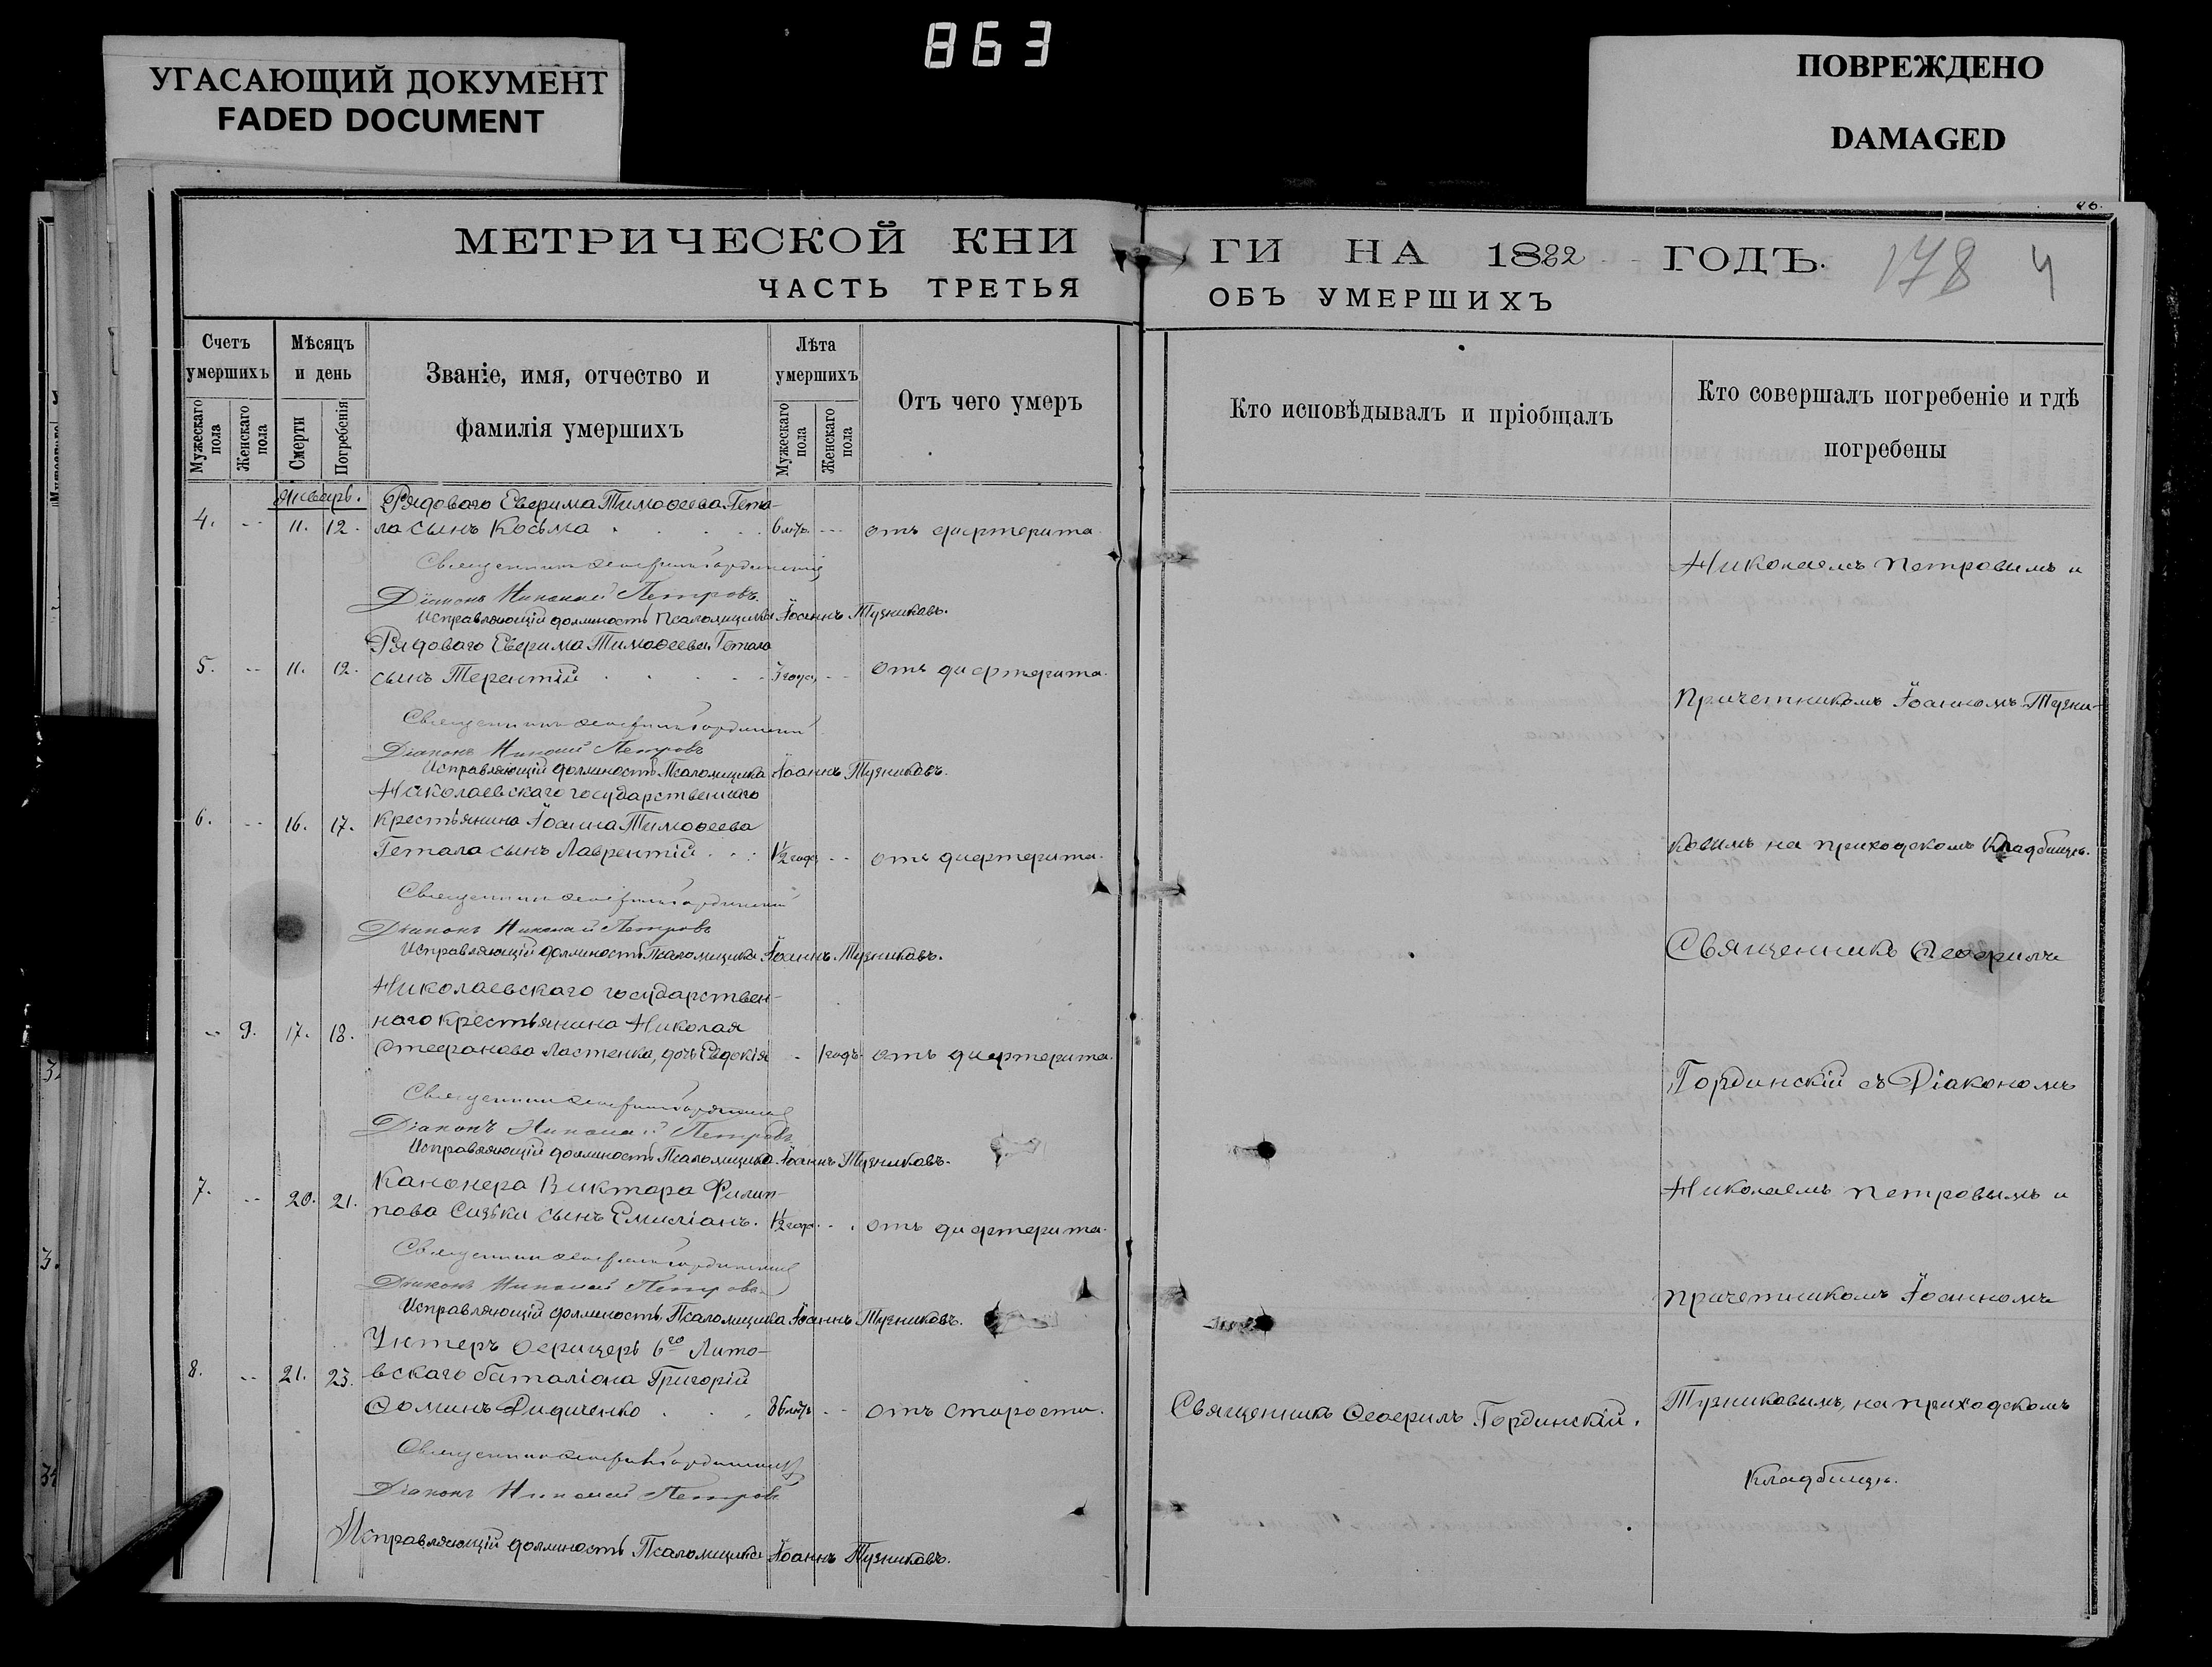 863
УГАСАЮЩИЙ ДОКУМЕНТ
FADED DOCUMENT
ПОВРЕЖДЕНО
DAMAGED
МЕТРИЧЕСКОЙ КНИ
ЧАСТЬ ТРЕТЬЯ
ГИ НА 1882 ГОДЪ.
178 4
ОБЪ УМЕРШИХЪ
Счетъ умершихъ
Мужескаго пола
Женскаго пола
Мѣсяцъ и день
Смерти
Погребенія
Званіе, имя, отчество и
фамилія умершихъ
Лѣта умершихъ
Мужескаго пола
Женскаго пола
Отъ чего умеръ
Кто исповѣдывалъ и пріобщалъ
Кто совершалъ погребеніе и гдѣ
погребены
Январь.
Рядового Ефрима Тимоѳеева Гета-
4. -- 11. 12. ла сынъ Косьма 6 лѣтъ -- отъ дифтерита.
Священникъ Ѳеофилъ Гординскій
Діаконъ Николай Петровъ
Исправляющій должность Псаломщика Іоаннъ Тузниковъ.
Рядового Ефрима Тимоѳеева Гетала
5. -- 11. 12. сынъ Терентій 3 года -- отъ дифтерита.
Священникъ Ѳеофилъ Гординскій
Діаконъ Николай Петровъ
Исправляющій должность Псаломщика Іоаннъ Тузниковъ.
Николаевскаго государственнаго
6. -- 16. 17. крестьянина Іоанна Тимоѳеева
Гетала сынъ Лаврентій 1½ года -- отъ дифтерита.
Священникъ Ѳеофилъ Гординскій
Діаконъ Николай Петровъ
Исправляющій должность Псаломщика Іоаннъ Тузниковъ.
Николаевскаго государствен-
-- 9. 17. 18. наго крестьянина Николая
Стефанова Ластенка, дочь Евдокія - 1 годъ отъ дифтерита.
Священникъ Ѳеофилъ Гординскій
Діаконъ Николай Петровъ
Исправляющій должность Псаломщика Іоаннъ Тузниковъ.
Канонера Виктора Филип-
7. -- 20. 21. пова Сизьки сынъ Емиліанъ. 1½ года -- отъ дифтерита.
Священникъ Ѳеофилъ Гординскій
Діаконъ Николай Петровъ
Исправляющій должность Псаломщика Іоаннъ Тузниковъ.
Унтеръ офицеръ 6го Лито-
8. -- 21. 23. вскаго баталіона Григорій
Ѳоминъ Дидиченко 86 лѣтъ -- отъ старости.
Священникъ Ѳеофилъ Гординскій
Діаконъ Николай Петровъ
Исправляющій должность Псаломщика Іоаннъ Тузниковъ.
Священникъ Ѳеофилъ Гординскій.
Николаемъ Петровымъ и
Причетникомъ Іоанномъ Тузни-
ковымъ на приходскомъ кладбищѣ.
Священникъ Ѳеофилъ
Гординскій съ Діакономъ
Николаемъ Петровымъ и
причетникомъ Іоанномъ
Тузниковымъ, на приходскомъ
кладбищѣ.